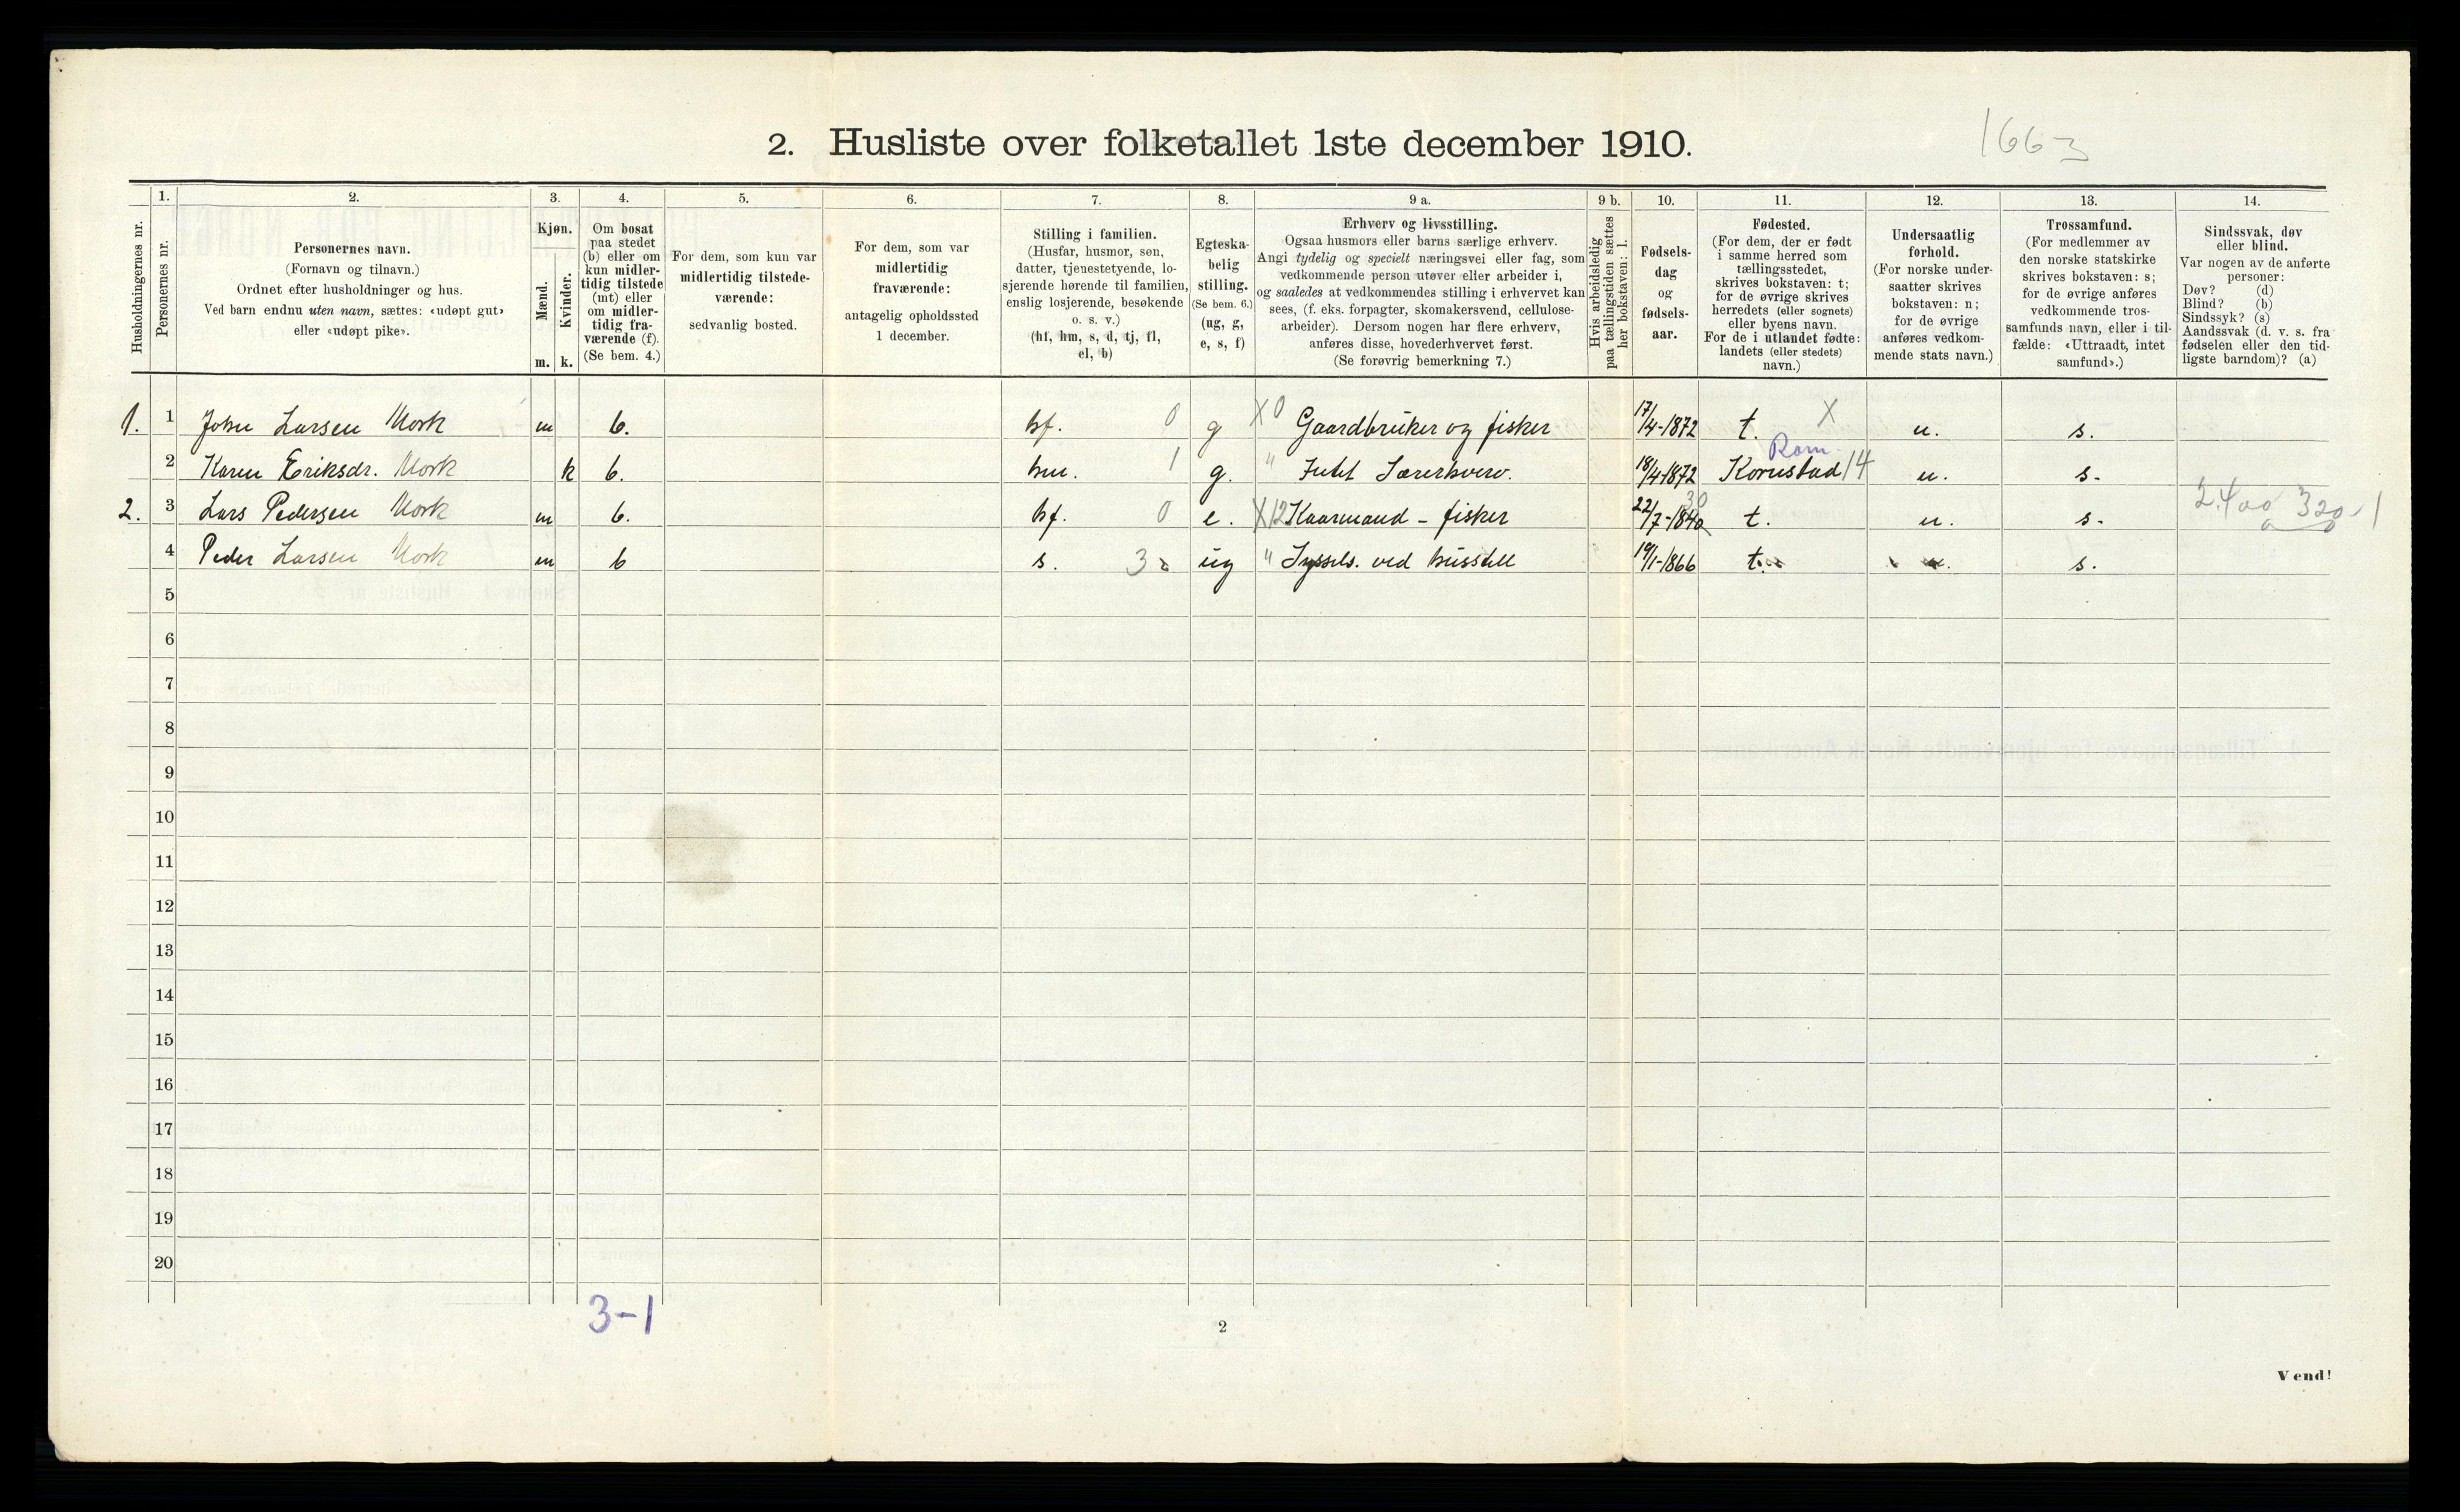 1663
2. Husliste over folketallet 1ste december 1910.
Husholdningernes nr.
1.
Personernes nr.
2.
Personernes navn.
(Fornavn og tilnavn.)
Ordnet efter husholdninger og hus.
Ved barn endnu uten navn, sættes: «udøpt gut»
eller «udøpt pike».
3.
Kjøn.
Mænd.
Kvinder.
m. k.
4.
Om bosat
paa stedet
(b) eller om
kun midler-
tidig tilstede
(mt) eller
om midler-
tidig fra-
værende (f).
(Se bem. 4.)
5.
For dem, som kun var
midlertidig tilstede-
værende:
sedvanlig bosted.
6.
For dem, som var
midlertidig
fraværende:
antagelig opholdssted
1 december.
7.
Stilling i familien.
(Husfar, husmor, søn,
datter, tjenestetyende, lo-
sjerende hørende til familien,
enslig losjerende, besøkende
o. s. v.)
(hf, hm, s, d, tj, fl,
el, b)
8.
Egteska-
belig
stilling.
(Se bem. 6.)
(ug, g,
e, s, f)
9 a.
Erhverv og livsstilling.
Ogsaa husmors eller barns særlige erhverv.
Angi tydelig og specielt næringsvei eller fag, som
vedkommende person utøver eller arbeider i,
og saaledes at vedkommendes stilling i erhvervet kan
sees, (f. eks. forpagter, skomakersvend, cellulose-
arbeider). Dersom nogen har flere erhverv,
anføres disse, hovederhvervet først.
(Se forøvrig bemerkning 7.)
9 b.
Hvis arbeidsledig
paa tællingstiden sættes
her bokstaven: l.
10.
Fødsels-
dag
og
fødsels-
aar.
11.
Fødested.
(For dem, der er født
i samme herred som
tællingsstedet,
skrives bokstaven: t;
for de øvrige skrives
herredets (eller sognets)
eller byens navn.
For de i utlandet fødte:
landets (eller stedets)
navn.)
12.
Undersaatlig
forhold.
(For norske under-
saatter skrives
bokstaven: n;
for de øvrige
anføres vedkom-
mende stats navn.)
13.
Trossamfund.
(For medlemmer av
den norske statskirke
skrives bokstaven: s;
for de øvrige anføres
vedkommende tros-
samfunds navn, eller i til-
fælde: «Uttraadt, intet
samfund».)
14.
Sindssvak, døv
eller blind.
Var nogen av de anførte
personer:
Døv? (d)
Blind? (b)
Sindssyk? (s)
Aandssvak (d. v. s. fra
fødselen eller den tid-
ligste barndom)? (a)
1. 1 John Larsen Mork m b. hf. 0 g X 0 Gaardbruker og fisker 17/4-1872 t. X n. s.
Rom
2 Karen Eriksdr. Mork k b. hm. 1 g. " Intet Særerhverv. 18/4-1872 Kornstad 14 n. s.
2. 3 Lars Pedersen Mork m b. hf. 0 e. X 12 Kaarmand - fisker 22/7-1840 30 t. n. s. 2.400 320-1
4 Peder Larsen Mork m b s. 3 ug " Syssels. ved husstell 19/1-1866 t. n. s.
5
6
7
8
9
10
11
12
13
14
15
16
17
18
19
20
3-1
2
Vend!